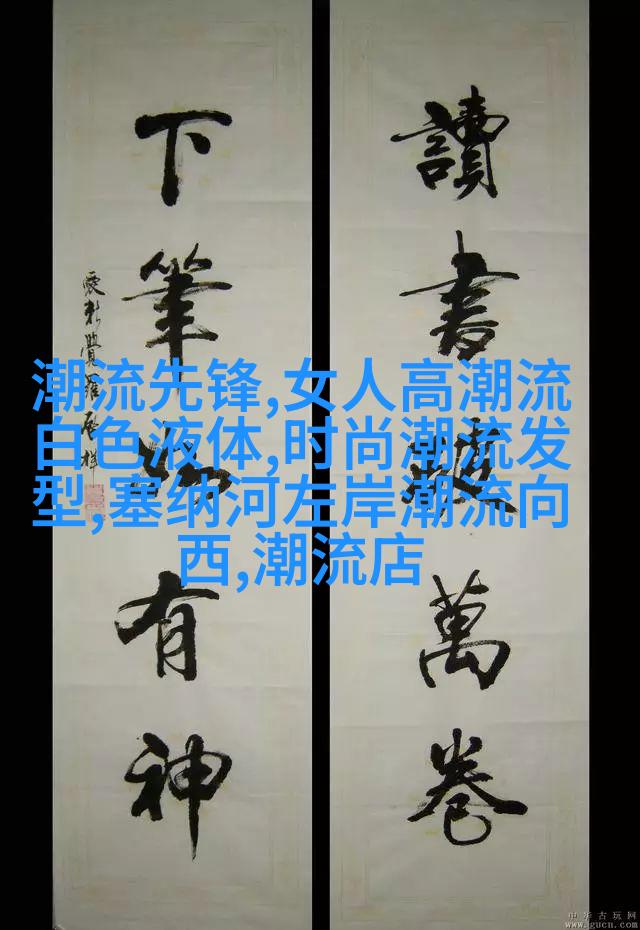 讀書破萬卷
下筆如有神
愛新覺羅
潮流先锋,女人高潮流
白色液体,时尚潮流发
型,塞纳河左岸潮流向
西,潮流店
中华古玩网
www.gucn.com